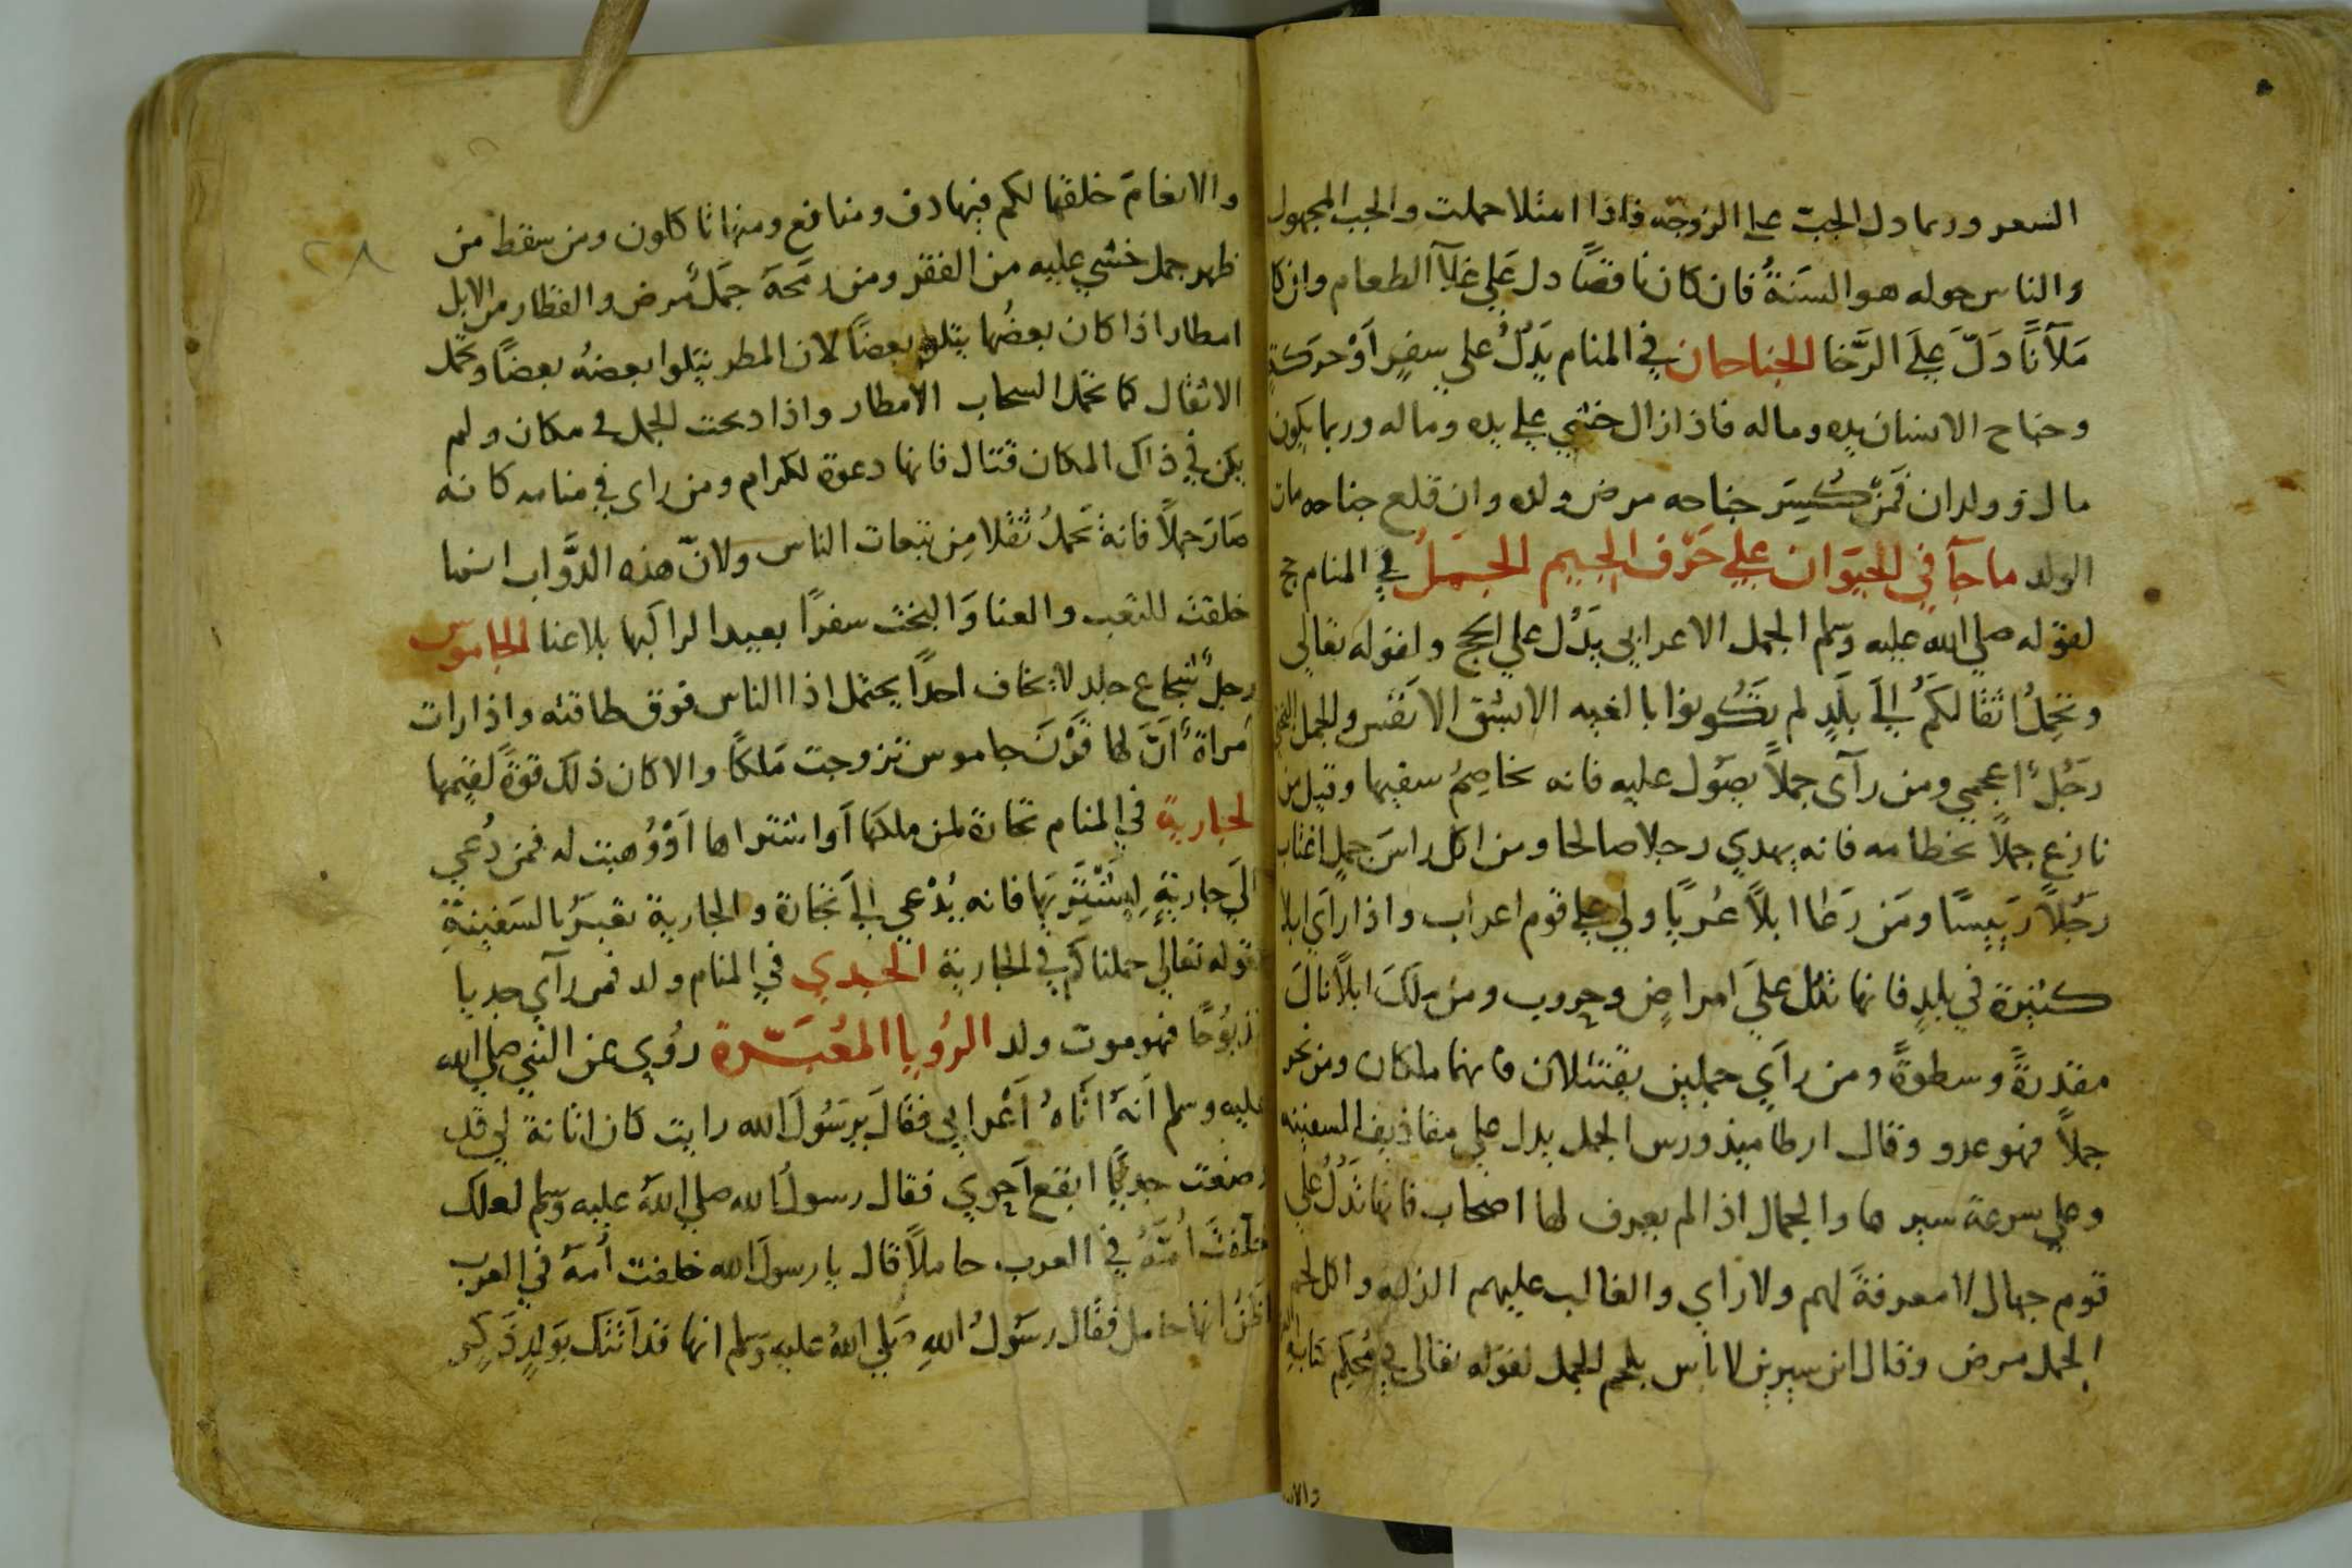 السعر وربما دل الجب على الزوجه فاذا امتلا حملت والجب المجهول
والناس حوله هو السَنَةُ فان كان ناقصًا دل عَلي غلآ الطعام وان كا
مَلآنًا دَلّ عِلَي الرَّخا الجناحان في المنام يَدُلُّ علي سفرٍ اَوْ حَرَكةٍ
وجناح الانسان يده وماله فاذا زال خشي علي يده وماله وربما يكون
مال وولدان فمَنْ كُسِرَ جناحه مرض ولده وان قلع جناحه مات
الولد ماجآ في الحيَوَان علي حَرْف الجيم الجَمَلُ في المنام حج
لقوله صلي الله عليه وسلم الجمل الاعرابي يَدُل علي الحج ولقوله تعالي
وتحمِلُ اثقالكمُ اِلَي بلَدٍ لم تَكُونوا بالغيه الا بشق الاَنفُس والجمل البختي
رَجُلٌ اعجمي ومن رآى جملاً يصَول عليه فانه يخاصِمُ سفيها وقيل من
نازع جملاً بخطامه فانه يهدي رجلا صالحا ومن اكل راسَ جملٍ اغتاب
رَجُلاً رَئيسًا ومَن رَعَا ابلاً عُربًا ولي علي قوم اعراب واذا رأي ابلا
كثيرة في بلدٍ فانها تدُل علَي امراضٍ وحروب ومن ملَكَ ابلاً نالَ
مقدرةً وسطوةً ومن رآي جملين يقتتلان فانهما ملكان ومن نحر
جملاً فهو عدو وقال ارطاميذورس الجمل يدل علي مقاذيف السفينه
وعلي سرعة سيرها والجمال اذا لم يعرف لها اصحاب فانها تَدُلُ علي
قوم جهال لا معرفةَ لهم ولا راي والغالب عليهم الذله واكل لحم
الجمل مرض وقال ابن سيرين لا باس بلحم الجمل لقوله تعالي في مُحكم كتابه
والانعامَ خلقها لكم فيها دف ومنافع ومنها تاكلون ومن سقط من
ظهر جمل خشي عليه من الفقر ومن رَمَحَهُ جمَلٌ مرض والقطار من الابل
امطار اذا كان بعضُها يتلو بعضًا لان المطر يتلوا بعضهُ بعضًا وتحمل
الاثقال كما تحمل السحاب الامطار واذا دبحت الجمل في مكان ولم
يكن في ذاك المكان قتال فانها دعوة لكرام ومن راى في منامه كانه
صَارَ جملاً فانه تَحملُ ثقلا مِن تبعات الناس ولانّ هذه الدَّواب انما
خلقت للتعب والعنا وَالبخت سفرًا بعيدا لراكبها بلا عنا الجاموس
رجلٌ شجاع جلد لا يخاف احدًا يحتمل اذا الناس فوق طاقته واذا رات
امَراةٌ اَنَّ لها قَرْنَ جاموس تزوجت مَلكًا والا كان ذلك قوةً لقيمها
الجارية في المنام تجارة لمن ملكها اَو اشتراها اَوْ وُهبت له فمن دُعي
الَي جاريةٍ لِيشْتَرِيَها فانه يُدْعي اِلَي تجارة والجارية تعبَرُ بالسَفينةِ
لقوله تعالي حملناكم في الجارية الجدي في المنام ولد فمن رآي جديا
مَذبوُحًا فهو موت ولد الرُويا المعُبَّرة رُوِي عن النبي صلي الله
عليه وسلم اَنهُ اَتَاهُ اَعْرابي فقالَ يرسَوُلَ الله رايت كان اتانة لي قد
وضعت جديًا ابقع اَحوي فقال رسولُ الله صلي اللهُ عليه وسلم لعلك
خلفت اُمَةً في العرب حاملاً قال يا رسولَ الله خلفت اُمةً في العرب
اَظنُ انها حامل فقال رسَوُلُ اللهِ صَلي اللهُ عليهِ وَسَلم انها قد اَتتكَ بوَلدٍ ذَكرٍ